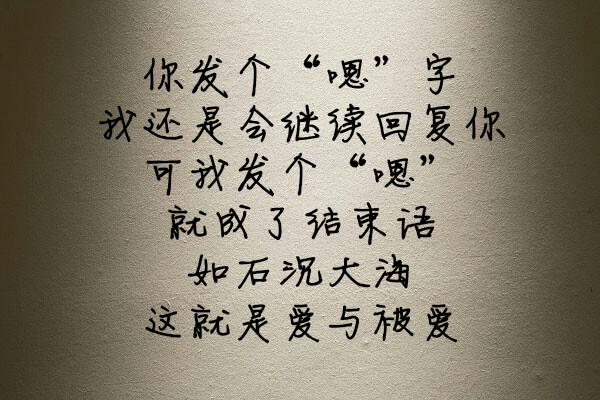 你发个“嗯”字
我还是会继续回复你
可我发个“嗯”
就成了结束语
如石沉大海
这就是爱与被爱